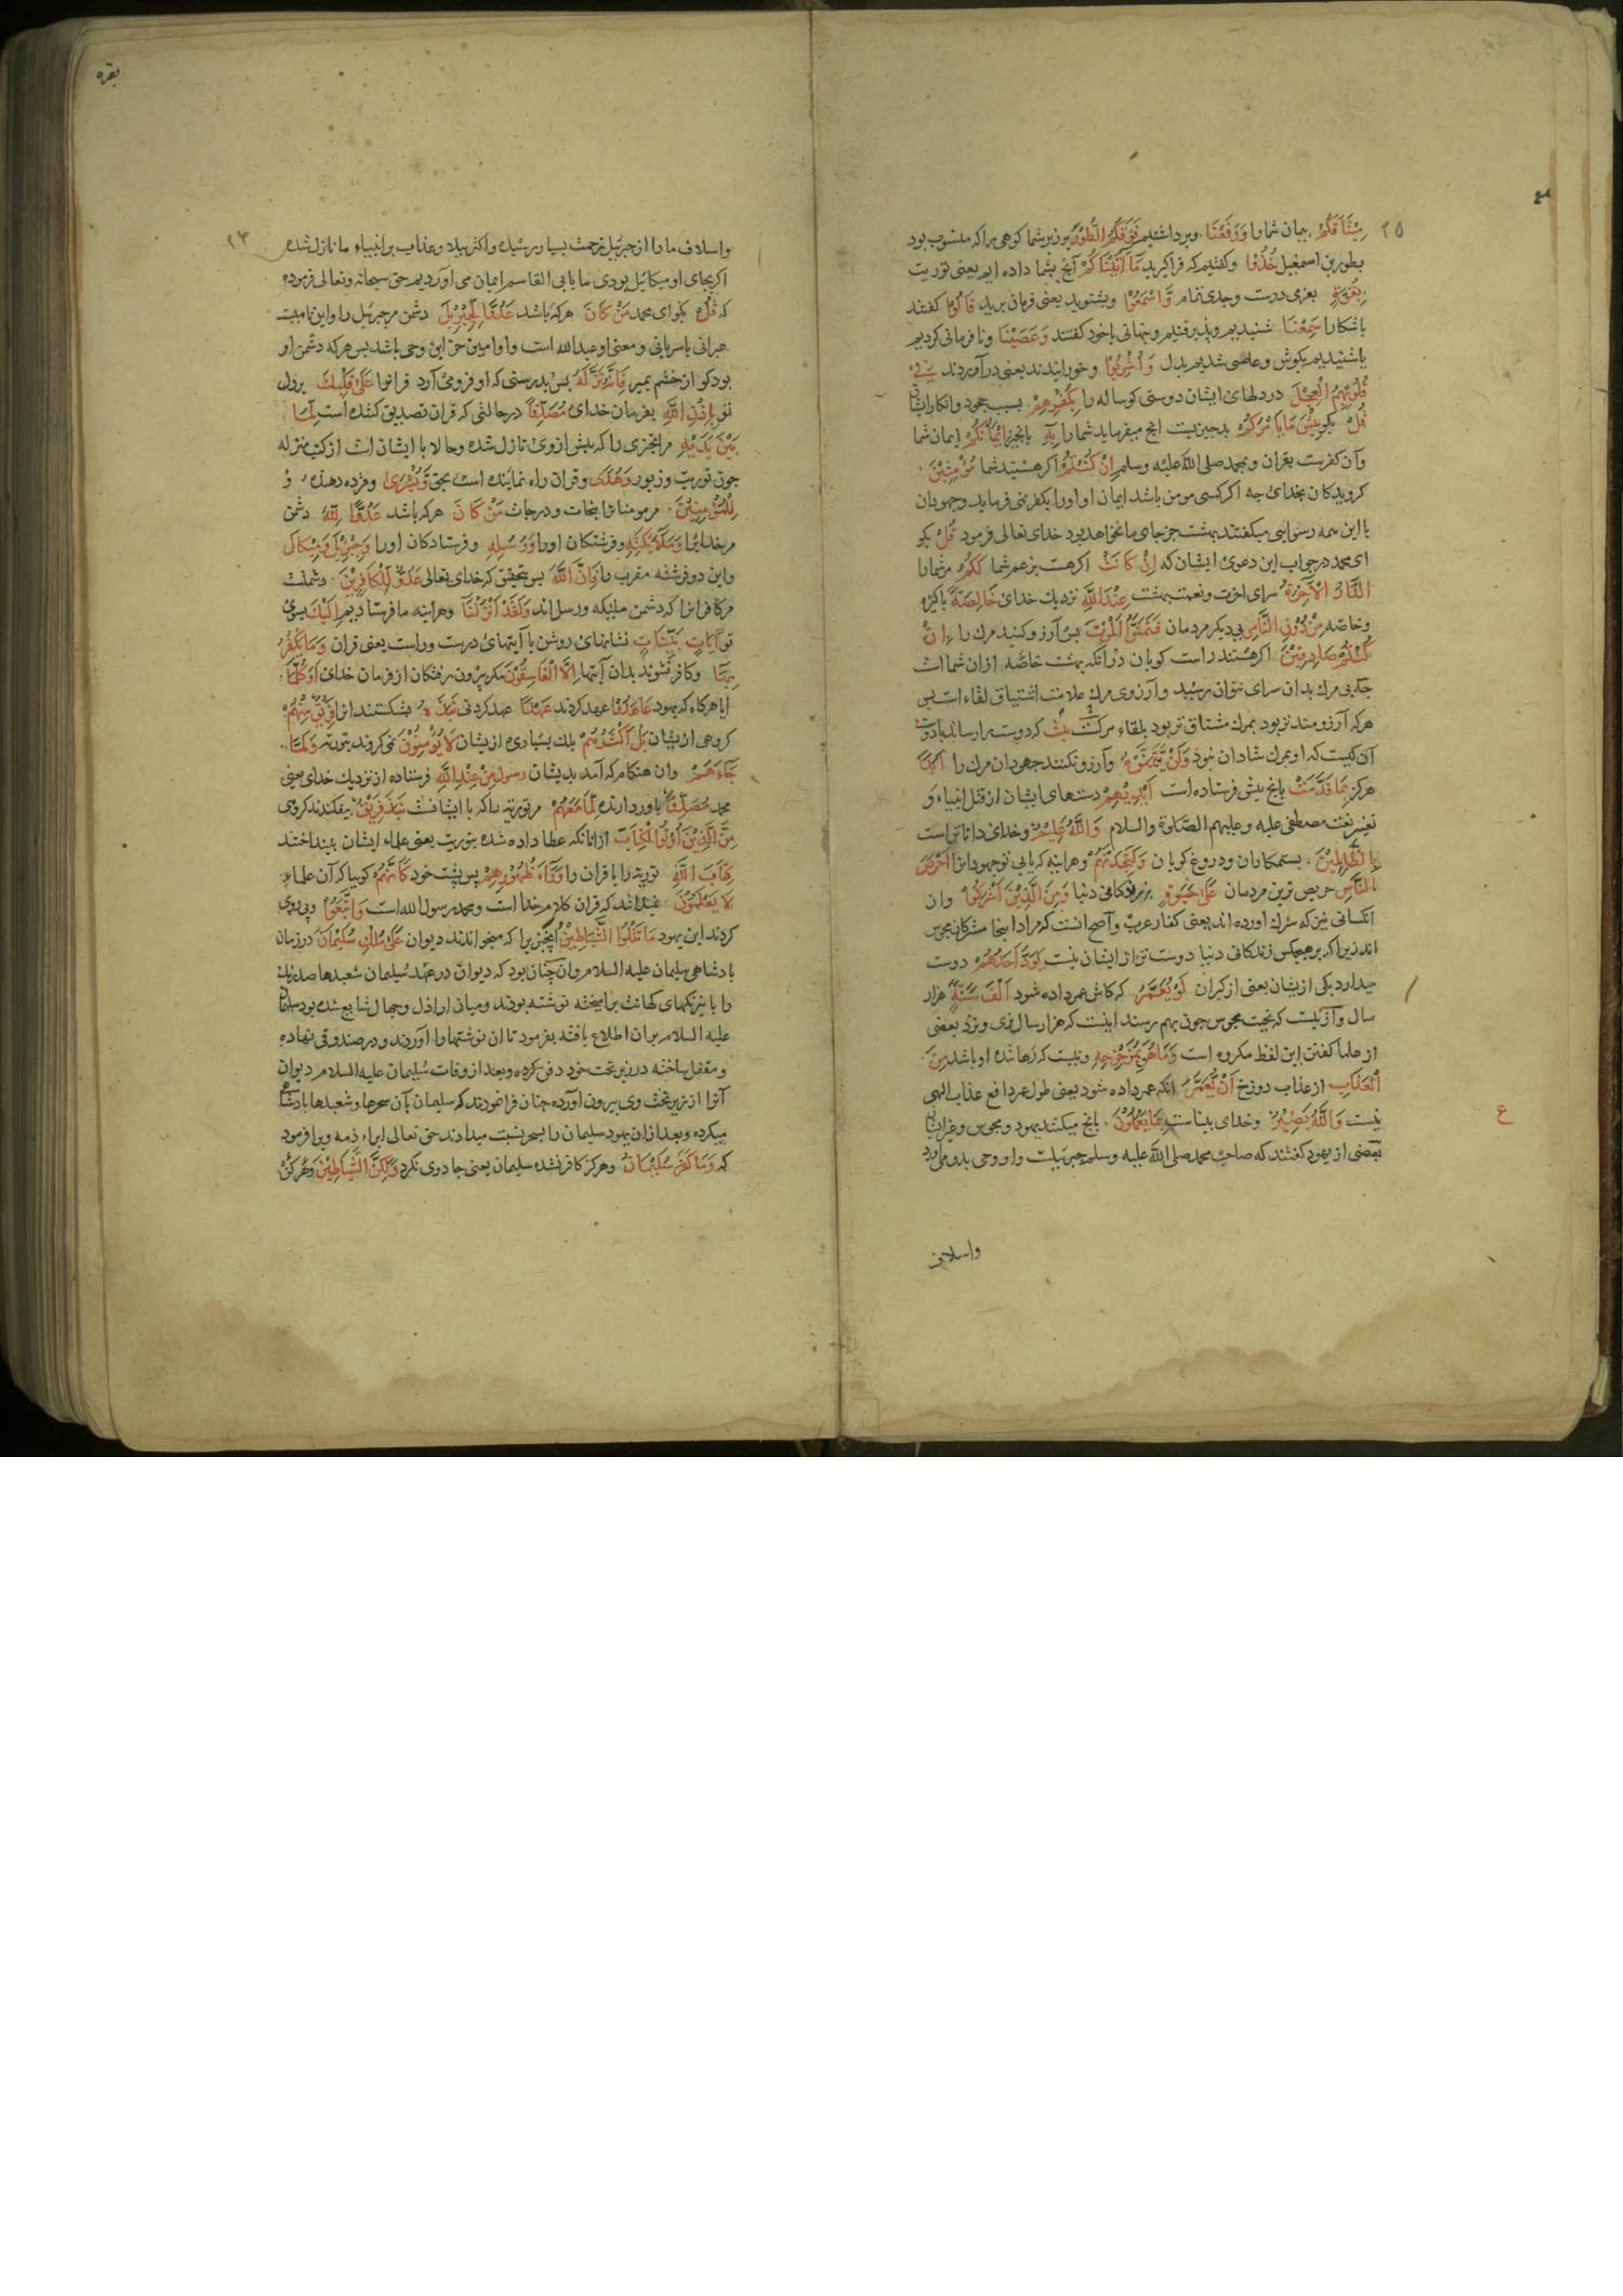 ۲۵
مِيْثَاقَكُمْ پیمان شما را وَرَفَعْنَا وبرداشتیم فَوْقَكُمُ الطُّوْرَ بر زبر شما کوهی را که منسوب بود
بطور بن اسمعیل خُذُوْا وکفتیم که فراکیرید مَآ اٰتَيْنَاكُمْ آنچ بشما داده ایم یعنی توریت
بِقُوَّةٍ بعزمی درست وجدی تمام وَّاسْمَعُوْا وبشنوید یعنی فرمان برید قَالُوْا کفتند
باشکارا سَمِعْنَا شنیدیم وپذیرفتیم وپنهانی باخود کفتند وَعَصَيْنَا ونافرمانی کردیم
یا شنیدیم بکوش وعاصی شدیم بدل وَاُشْرِبُوْا وخورانیدند یعنی درآوردند فِيْ
قُلُوْبِهِمُ الْعِجْلَ در دلهای ایشان دوستی کوساله را بِكُفْرِهِمْ بسبب جحود وانکار ایشان
قُلْ بکو بِئْسَ مَا يَاْمُرُكُمْ بد چیزیست انچ میفرماید شما را بِهٖ بانچیز اِيْمَانُكُمْ ایمان شما
وآن کفرست بقران وبمحمد صلی الله علیه وسلم اِنْ كُنْتُمْ اکر هستید شما مُؤْمِنِيْنَ
کرویدکان بخدای چه اکر کسی مومن باشد ایمان او اورا بکفر نمی فرماید وجهودان
با این همه رسوایی میکفتند بهشت جز جای ما نخواهد بود خدای تعالی فرمود قُلْ بکو
ای محمد در جواب این دعوی ایشان که اِنْ كَانَتْ اکر هست بزعم شما لَكُمُ مر شما را
الدَّارُ الْاٰخِرَةُ سرای اخرت ونعمت بهشت عِنْدَ اللّٰهِ نزدیک خدای خَالِصَةً پاکیزه
وخاصه مِنْ دُوْنِ النَّاسِ بی دیکر مردمان فَتَمَنَّوُا الْمَوْتَ پس آرزو کنید مرک را اِنْ
كُنْتُمْ صَادِقِيْنَ اکر هستند راست کویان در آنکه بهشت خاصّه ازان شما است
چه بی مرک بدان سرای نتوان رسید وآرزوی مرک علامت اشتیاق لقاء است پس
هرکه آرزومند تر بود بمرک مشتاق تر بود بلقاء مرکت که دوست را رساند بادوست
آن کیست که او بمرک شادان نبود وَلَنْ يَّتَمَنَّوْهُ وآرزو نکنند جهودان مرک را اَبَدًا
هرکز بِمَا قَدَّمَتْ بانچ پیش فرستاده است اَيْدِيْهِمْ دستهای ایشان از قتل انبیاء و
تغییر نعت مصطفی علیه وعلیهم الصلوة والسلام وَاللّٰهُ عَلِيْمٌ وخدای داناترست
بِالظّٰلِمِيْنَ بستمکاران ودروغ کویان وَلَتَجِدَنَّهُمْ وهراینه که یابی تو جهودانرا اَحْرَصَ
النَّاسِ حریص ترین مردمان عَلٰى حَيٰوةٍ بر زندکانی دنیا وَمِنَ الَّذِيْنَ اَشْرَكُوْا وان
انکسانی نیز که شرک اورده اند یعنی کفار عرب واصح انست که مراد اینجا مشرکان مجوس
اند زیرا که بر هیچکس زندکانی دنیا دوست تر از ایشان نیست يَوَدُّ اَحَدُهُمْ دوست
میدارد یکی از یشان یعنی از کبران لَوْ يُعَمَّرُ که کاش عمر داده شود اَلْفَ سَنَةٍ هزار
سال وآن کیست که تحیت مجوس چون بهم رسند اینست که هزار سال بزی ونزد بعضی
از علما کفتن این لفظ مکروه است وَمَا هُوَ بِمُزَحْزِحِهٖ ونیست که رهاننده او باشد مِنَ
الْعَذَابِ از عذاب دوزخ اَنْ يُّعَمَّرَ انکه عمر داده شود یعنی طول عمر دافع عذاب الهی
نیست وَاللّٰهُ بَصِيْرٌ وخدای بیناست بِمَا يَعْمَلُوْنَ بانچ میکنند یهود ومجوس وغیر ایشان
ع
بعضی از یهود کفتند که صاحب محمد صلی الله علیه وسلم جبرئیلست واو وحی بدو می آورد
واسلاف
بقره
۲۳
واسلاف ما را از جبرئیل زحمت بسیار رسیده واکثر بلا وعذاب بر انبیاء ما نازل شده
اکر بجای او میکائیل بودی ما بابی القاسم ایمان می آوردیم حق سبحانه وتعالی فرموده
که قُلْ بکو ای محمد مَنْ كَانَ هرکه باشد عَدُوًّا لِّجِبْرِيْلَ دشمن مر جبرئیل را واین نامیست
عبرانی یا سریانی ومعنی او عبدالله است واو امین حق این وحی باشد پس هرکه دشمن او
بود کو از خشم بمیر فَاِنَّهٗ نَزَّلَهٗ پس بدرستی که او فرومی آورد قرانرا عَلٰى قَلْبِكَ بر دل
تو بِاِذْنِ اللّٰهِ بفرمان خدای مُصَدِّقًا در حالتی که قران تصدیق کننده است لِّمَا
بَيْنَ يَدَيْهِ مر انچیزی را که پیش از وی نازل شده وحالا با ایشان است از کتب منزله
چون توریت وزبور وَهُدًى وقران راه نماینده است بحق وَّبُشْرٰى ومژده دهنده
لِلْمُؤْمِنِيْنَ مر مومنانرا بنجات ودرجات مَنْ كَانَ هرکه باشد عَدُوًّا لِّلّٰهِ دشمن
مر خدایرا وَمَلٰٓئِكَتِهٖ وفرشتکان اورا وَرُسُلِهٖ وفرستادکان اورا وَجِبْرِيْلَ وَمِيْكَالَ
واین دو فرشته مقرب را فَاِنَّ اللّٰهَ پس بتحقیق که خدای تعالی عَدُوٌّ لِّلْكَافِرِيْنَ دشمنست
مر کافرانرا که دشمن ملئکه ورسل اند وَلَقَدْ اَنْزَلْنَا وهراینه ما فرستادیم اِلَيْكَ بسوی
تو اٰيَاتٍ بَيِّنَاتٍ نشانهای روشن یا آیتهای درست وراست یعنی قران وَمَا يَكْفُرُ
بِهَا وکافر نشوند بدان آیتها اِلَّا الْفَاسِقُوْنَ مکر بیرون رفتکان از فرمان خدای اَوَكُلَّمَا
ایا هرکاه که یهود عَاهَدُوْا عهد کردند عَهْدًا عهد کردنی نَبَذَهٗ بشکستند انرا فَرِيْقٌ مِّنْهُمْ
کروهی از یشان بَلْ اَكْثَرُهُمْ بلک بسیاری از یشان لَا يُؤْمِنُوْنَ نمی کروند بتوریة وَلَمَّا
جَآءَهُمْ وان هنکام که آمد بدیشان رسول مِنْ عِنْدِ اللّٰهِ فرستاده از نزدیک خدای یعنی
محمد مُصَدِّقٌ باور دارنده لِّمَا مَعَهُمْ مر توریة را که با ایشانست نَبَذَ فَرِيْقٌ بیفکندند کروهی
مِّنَ الَّذِيْنَ اُوْتُوا الْكِتَابَ ازانانکه عطا داده شده بتوریت یعنی علماء ایشان بینداختند
كِتَابَ اللّٰهِ توریة را یا قران را وَرَآءَ ظُهُوْرِهِمْ پس پشت خود كَاَنَّهُمْ کوییا که آن علماء
لَا يَعْلَمُوْنَ نمیدانند که قران کلام خدا است ومحمد رسول الله است وَاتَّبَعُوْا وپی روی
کردند این یهود مَا تَتْلُوا الشَّيَاطِيْنُ انچیزیرا که میخواندند دیوان عَلٰى مُلْكِ سُلَيْمَانَ در زمان
پادشاهی سلیمان علیه السلام وان چنان بود که دیوان در عهد سلیمان شعبدها صد رنک
را با نیرنکهای کهانت برامیخته نوشته بودند ومیان اراذل وجهال شایع شده بود سلیمان
علیه السلام بران اطلاع یافته بفرمود تا ان نوشتها را آوردند ودر صندوقی نهاده
ومقفل ساخته در زیر تخت خود دفن کرده وبعد از وفات سلیمان علیه السلام دیوان
آنرا از زیر تخت وی بیرون اورده چنان فرانمودند که سلیمان بآن سحرها وشعبدها پادشاهی
میکرده وبعد ازان یهود سلیمان را بسحر نسبت میدادند حق تعالی ابراء ذمه ویرا فرمود
که وَمَا كَفَرَ سُلَيْمَانُ وهرکز کافر نشده سلیمان یعنی جادوی نکرد وَلٰكِنَّ الشَّيَاطِيْنَ